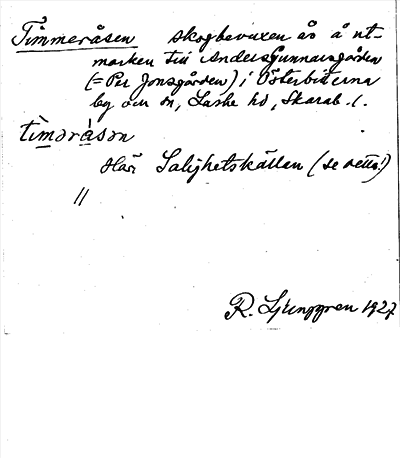 Timmeråsen skogbevuxen ås å ut-
marken till Anders Gunnarsgården
(= Per Jonsgården) i Österbitterna
by och sn, Laske hd, Skarab. l.
tìməràsən
Här Salighetskällan (se detta!)
//
R. Ljunggren 1927